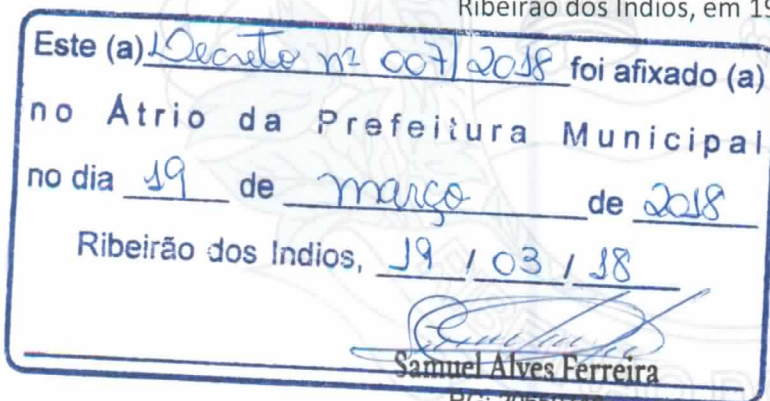 Ribeirão dos Índios, em 19
Este (a) Decreto nº 007/2018 foi afixado (a)
no Átrio da Prefeitura Municipal
no dia 19 de março de 2018
Ribeirão dos Indios, 19 / 03 / 18
Samuel Alves Ferreira